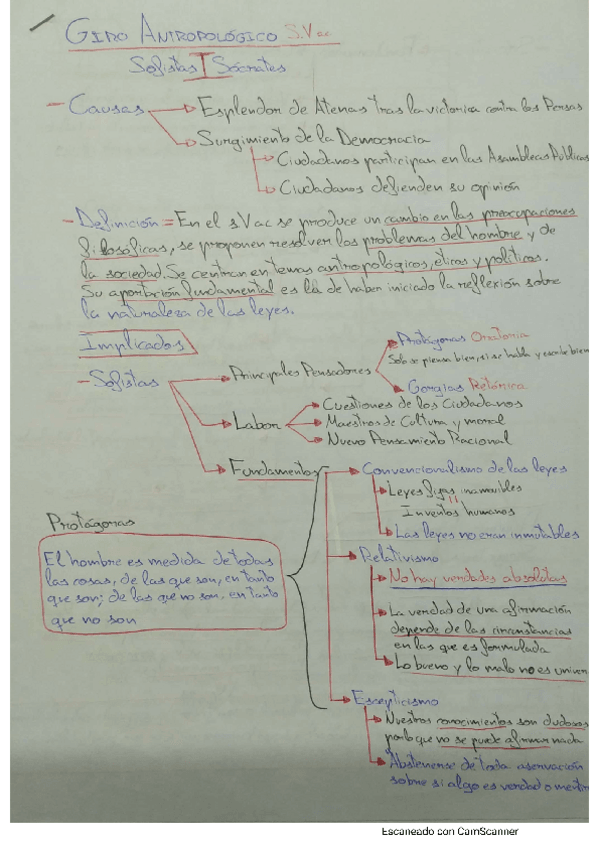 GIRO ANTROPOLÓGICO S.V ac
Sofistas Sócrates
- Causas
Esplendor de Atenas tras la victoria contra los Persas
Surgimiento de la Democracia
Ciudadanos participan en las Asambleas Públicas
Ciudadanos defienden su opinión
- Definición = En el s V ac se produce un cambio en las preocupaciones
filosóficas, se proponen resolver los problemas del hombre y de
la sociedad. Se centran en temas antropológicos, éticos y políticos.
Su aportación fundamental es la de haber iniciado la reflexión sobre
la naturaleza de las leyes.
Implicados
- Sofistas
Principales Pensadores
Protágoras Oratoria
Solo se piensa bien, si se habla y escribe bien
Gorgias Retórica
Labor
Cuestiones de los Ciudadanos
Maestros de Cultura y moral
Nuevo Pensamiento Racional
Fundamentos
Convencionalismo de las leyes
Leyes fijas, inamovibles
Inventos humanos
Las leyes no eran inmutables
Relativismo
No hay verdades absolutas
La verdad de una afirmación
depende de las circunstancias
en las que es formulada
Lo bueno y lo malo no es univer
Escepticismo
Nuestros conocimientos son dudosos
por lo que no se puede afirmar nada
Abstenerse de toda aseveración
sobre si algo es verdad o mentir
Protágoras
El hombre es medida de todas
las cosas, de las que son, en tanto
que son; de las que no son, en tanto
que no son
Escaneado con CamScanner